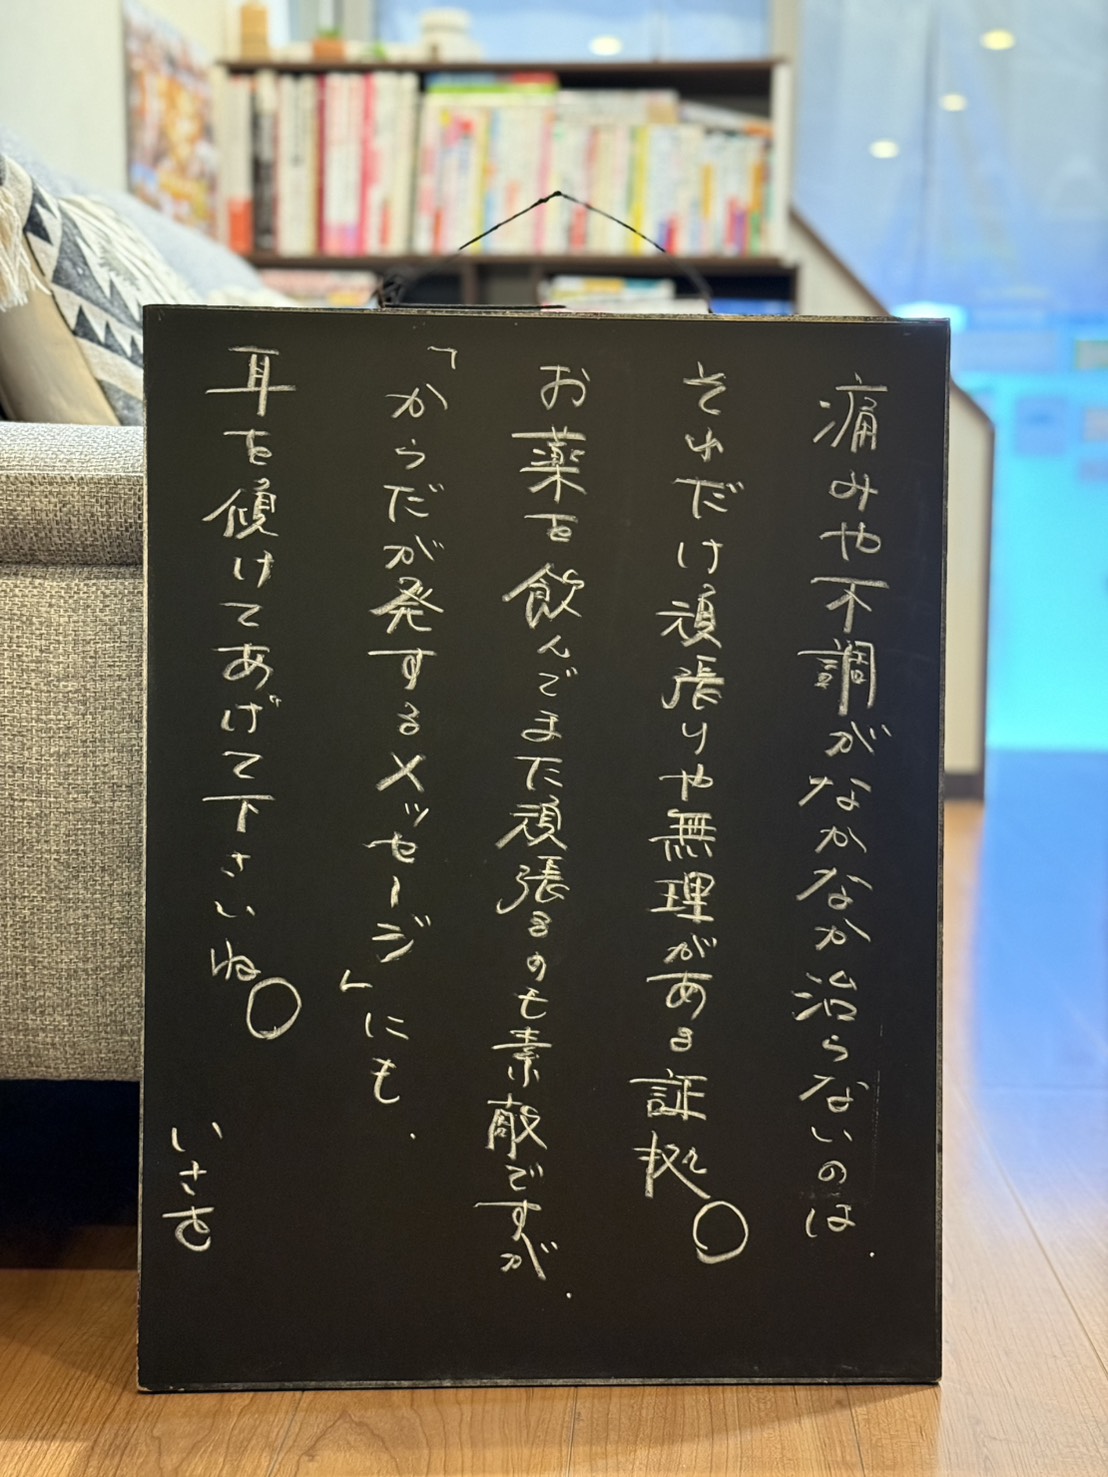 痛みや不調がなかなか治らないのは、
それだけ頑張りや無理がある証拠。
お薬を飲んでまた頑張るのも素敵ですが、
「からだが発するメッセージ」にも、
耳を傾けてあげて下さいね。
いさを